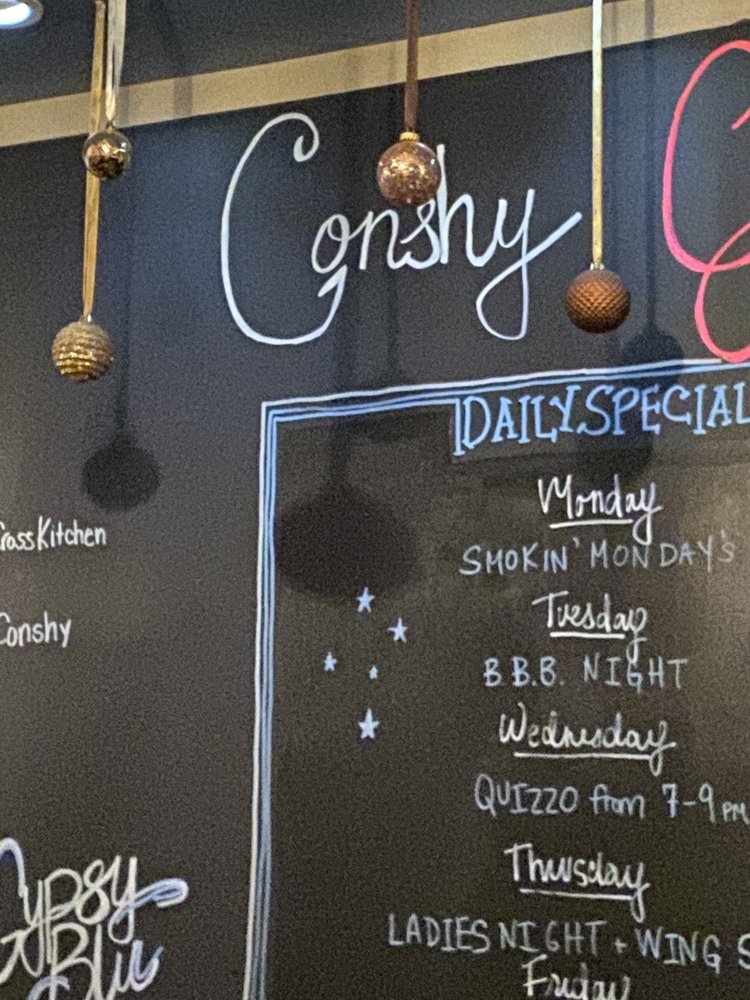 Conshy
DAILY SPECIAL
Monday
SMOKIN' MONDAY'S
Tuesday
B.B.B. NIGHT
Wednesday
QUIZZO from 7-9 PM
Thursday
LADIES NIGHT + WING S
Friday
CrossKitchen
Conshy
Gypsy
Blu